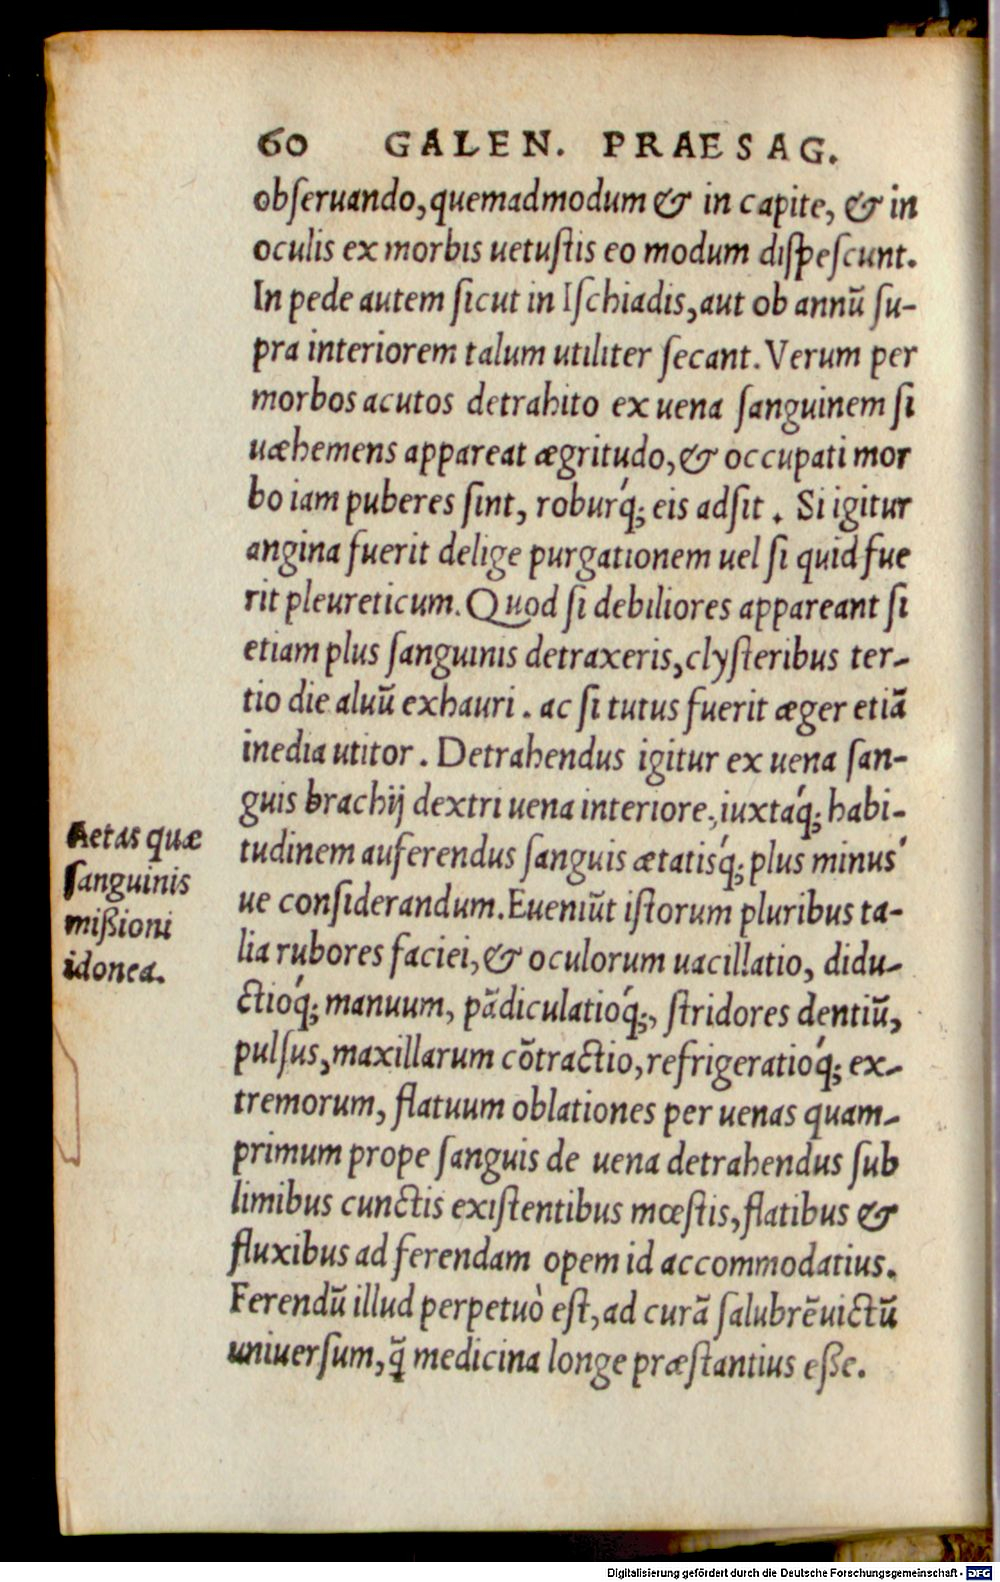 60 GALEN. PRAESAG.
obſeruando, quemadmodum & in capite, & in
oculis ex morbis uetuſtis eo modum diſpeſcunt.
In pede autem ſicut in Iſchiadis, aut ob annū ſu-
pra interiorem talum utiliter ſecant. Verum per
morbos acutos detrahito ex uena ſanguinem ſi
uæhemens appareat ægritudo, & occupati mor
bo iam puberes ſint, roburq́; eis adſit. Si igitur
angina fuerit delige purgationem uel ſi quid fue
rit pleureticum. Quod ſi debiliores appareant ſi
etiam plus ſanguinis detraxeris, clyſteribus ter-
tio die aluū exhauri. ac ſi tutus fuerit æger etiā
inedia utitor. Detrahendus igitur ex uena ſan-
guis brachij dextri uena interiore, iuxtaq́; habi-
tudinem auferendus ſanguis ætatisq́; plus minus
ue conſiderandum. Eueniūt iſtorum pluribus ta-
lia rubores faciei, & oculorum uacillatio, didu-
ctioq́; manuum, pādiculatioq́;, ſtridores dentiū,
pulſus, maxillarum cōtractio, refrigeratioq́; ex-
tremorum, flatuum oblationes per uenas quam-
primum prope ſanguis de uena detrahendus ſub
limibus cunctis exiſtentibus mœſtis, flatibus &
fluxibus ad ferendam opem id accommodatius.
Ferendū illud perpetuò eſt, ad curā ſalubrē uictū
uniuerſum, q̄ medicina longe præſtantius eſſe.
Aetas quæ
ſanguinis
miſsioni
idonea.
Digitalisierung gefördert durch die Deutsche Forschungsgemeinschaft - DFG